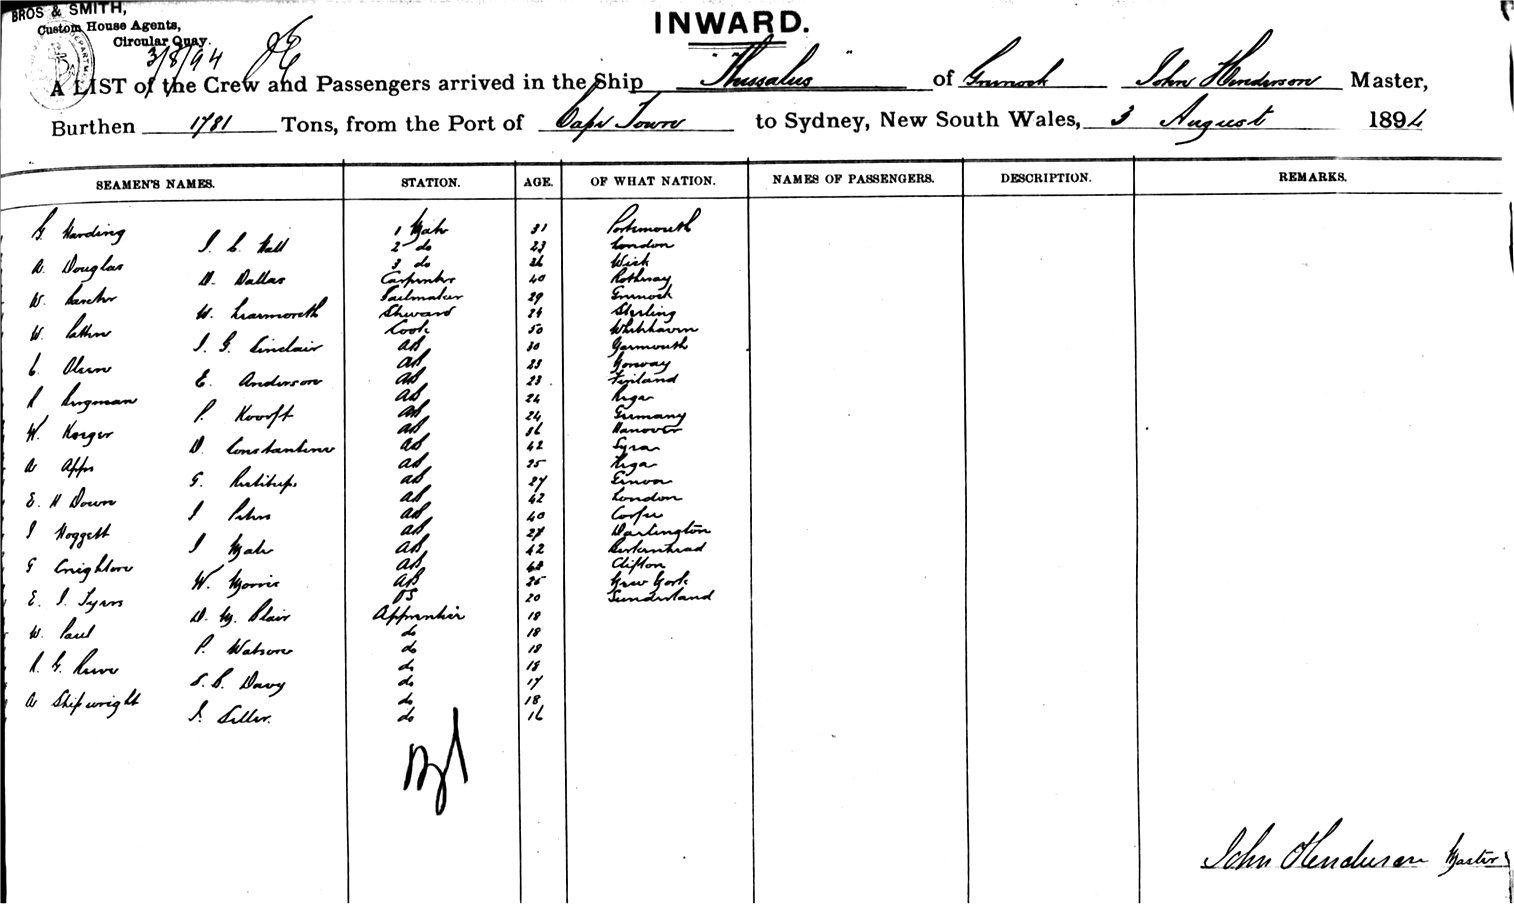 BROS & SMITH,
Custom House Agents,
Circular Quay.
3/8/94
INWARD.
A LIST of the Crew and Passengers arrived in the Ship "Thessalus" of Greenock John Henderson Master,
Burthen 1781 Tons, from the Port of Cape Town to Sydney, New South Wales, 3 August 1894
SEAMEN'S NAMES. STATION. AGE. OF WHAT NATION. NAMES OF PASSENGERS. DESCRIPTION. REMARKS.
G Harding 1 Mate 31 Portsmouth
J. C. Hall 2 do 23 London
A. Douglas 3 do 26 Wick
D. Dallas Carpenter 40 Rothesay
W. Sailmaker 29 Greenock
W. Learmonth Steward 24 Sterling
W. Cook 50 Whitehaven
J. G. Sinclair AB 30 Yarmouth
C. Olsen AB 23 Norway
E. Anderson AB 23 Finland
Bergman AB 24 Riga
P. AB 24 Germany
W. AB 36 Hanover
D. Constantine AB 42 Syra
A Apps AB 25 Riga
G. AB 27 Genoa
E. H Down AB 42 London
J Peters AB 40 Corfu
J Hoggett AB 27 Darlington
J Mate AB 42 Birkenhead
G Creighton AB Clifton
W. Morris AB 25 New York
E. J. Tyers OS 20 Sunderland
D. M. Blair Apprentice 18
W. Paul do 18
P. Watson do 18
R. G. do 18
S. B. Davy do 17
A Shipwright do 18
J. do 16
John Henderson Master